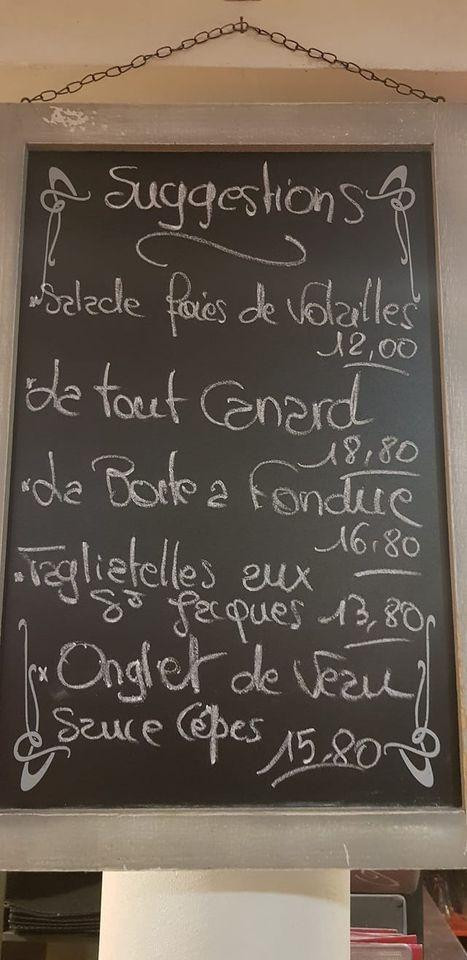 Suggestions
*Salade foies de Volailles
12,00
*Le tout Canard
18,80
*La Boite a Fondue
16,80
*Tagliatelles aux
St Jacques 13,80
* Onglet de Veau
Sauce Cêpes
15,80